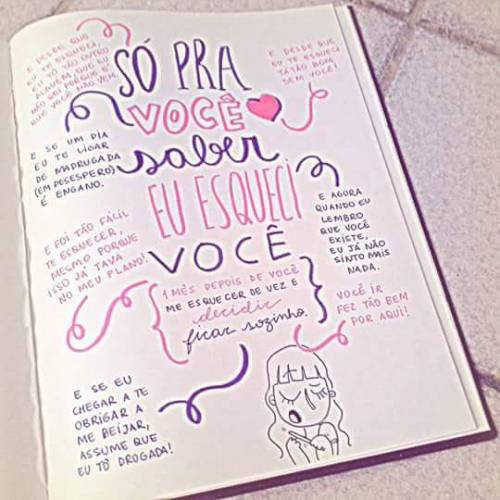 E DESDE QUE
EU TE ESQUECI,
EU TÔ TÃO OUTRO
ALGUÉM QUE EU
NÃO SEI PORQUE É
QUE VOCÊ NÃO VEM.
E DESDE QUE
EU TE ESQUECI
TÁ TÃO BOM
SEM VOCÊ!
SÓ PRA
VOCÊ
saber
EU ESQUECI
VOCÊ
E SE UM DIA
EU TE LIGAR
DE MADRUGADA
(EM DESESPERO)
É ENGANO.
E FOI TÃO FÁCIL
TE ESQUECER,
MESMO PORQUE
ISSO JÁ TAVA
NO MEU PLANO!
E AGORA
QUANDO EU
LEMBRO
QUE VOCÊ
EXISTE,
EU JÁ NÃO
SINTO MAIS
NADA.
1 MÊS DEPOIS DE VOCÊ
ME ESQUECER DE VEZ E
decidir
ficar sozinho.
VOCÊ IR
FEZ TÃO BEM
POR AQUI!
E SE EU
CHEGAR A TE
OBRIGAR A
ME BEIJAR,
ASSUME QUE
EU TÔ DROGADA!